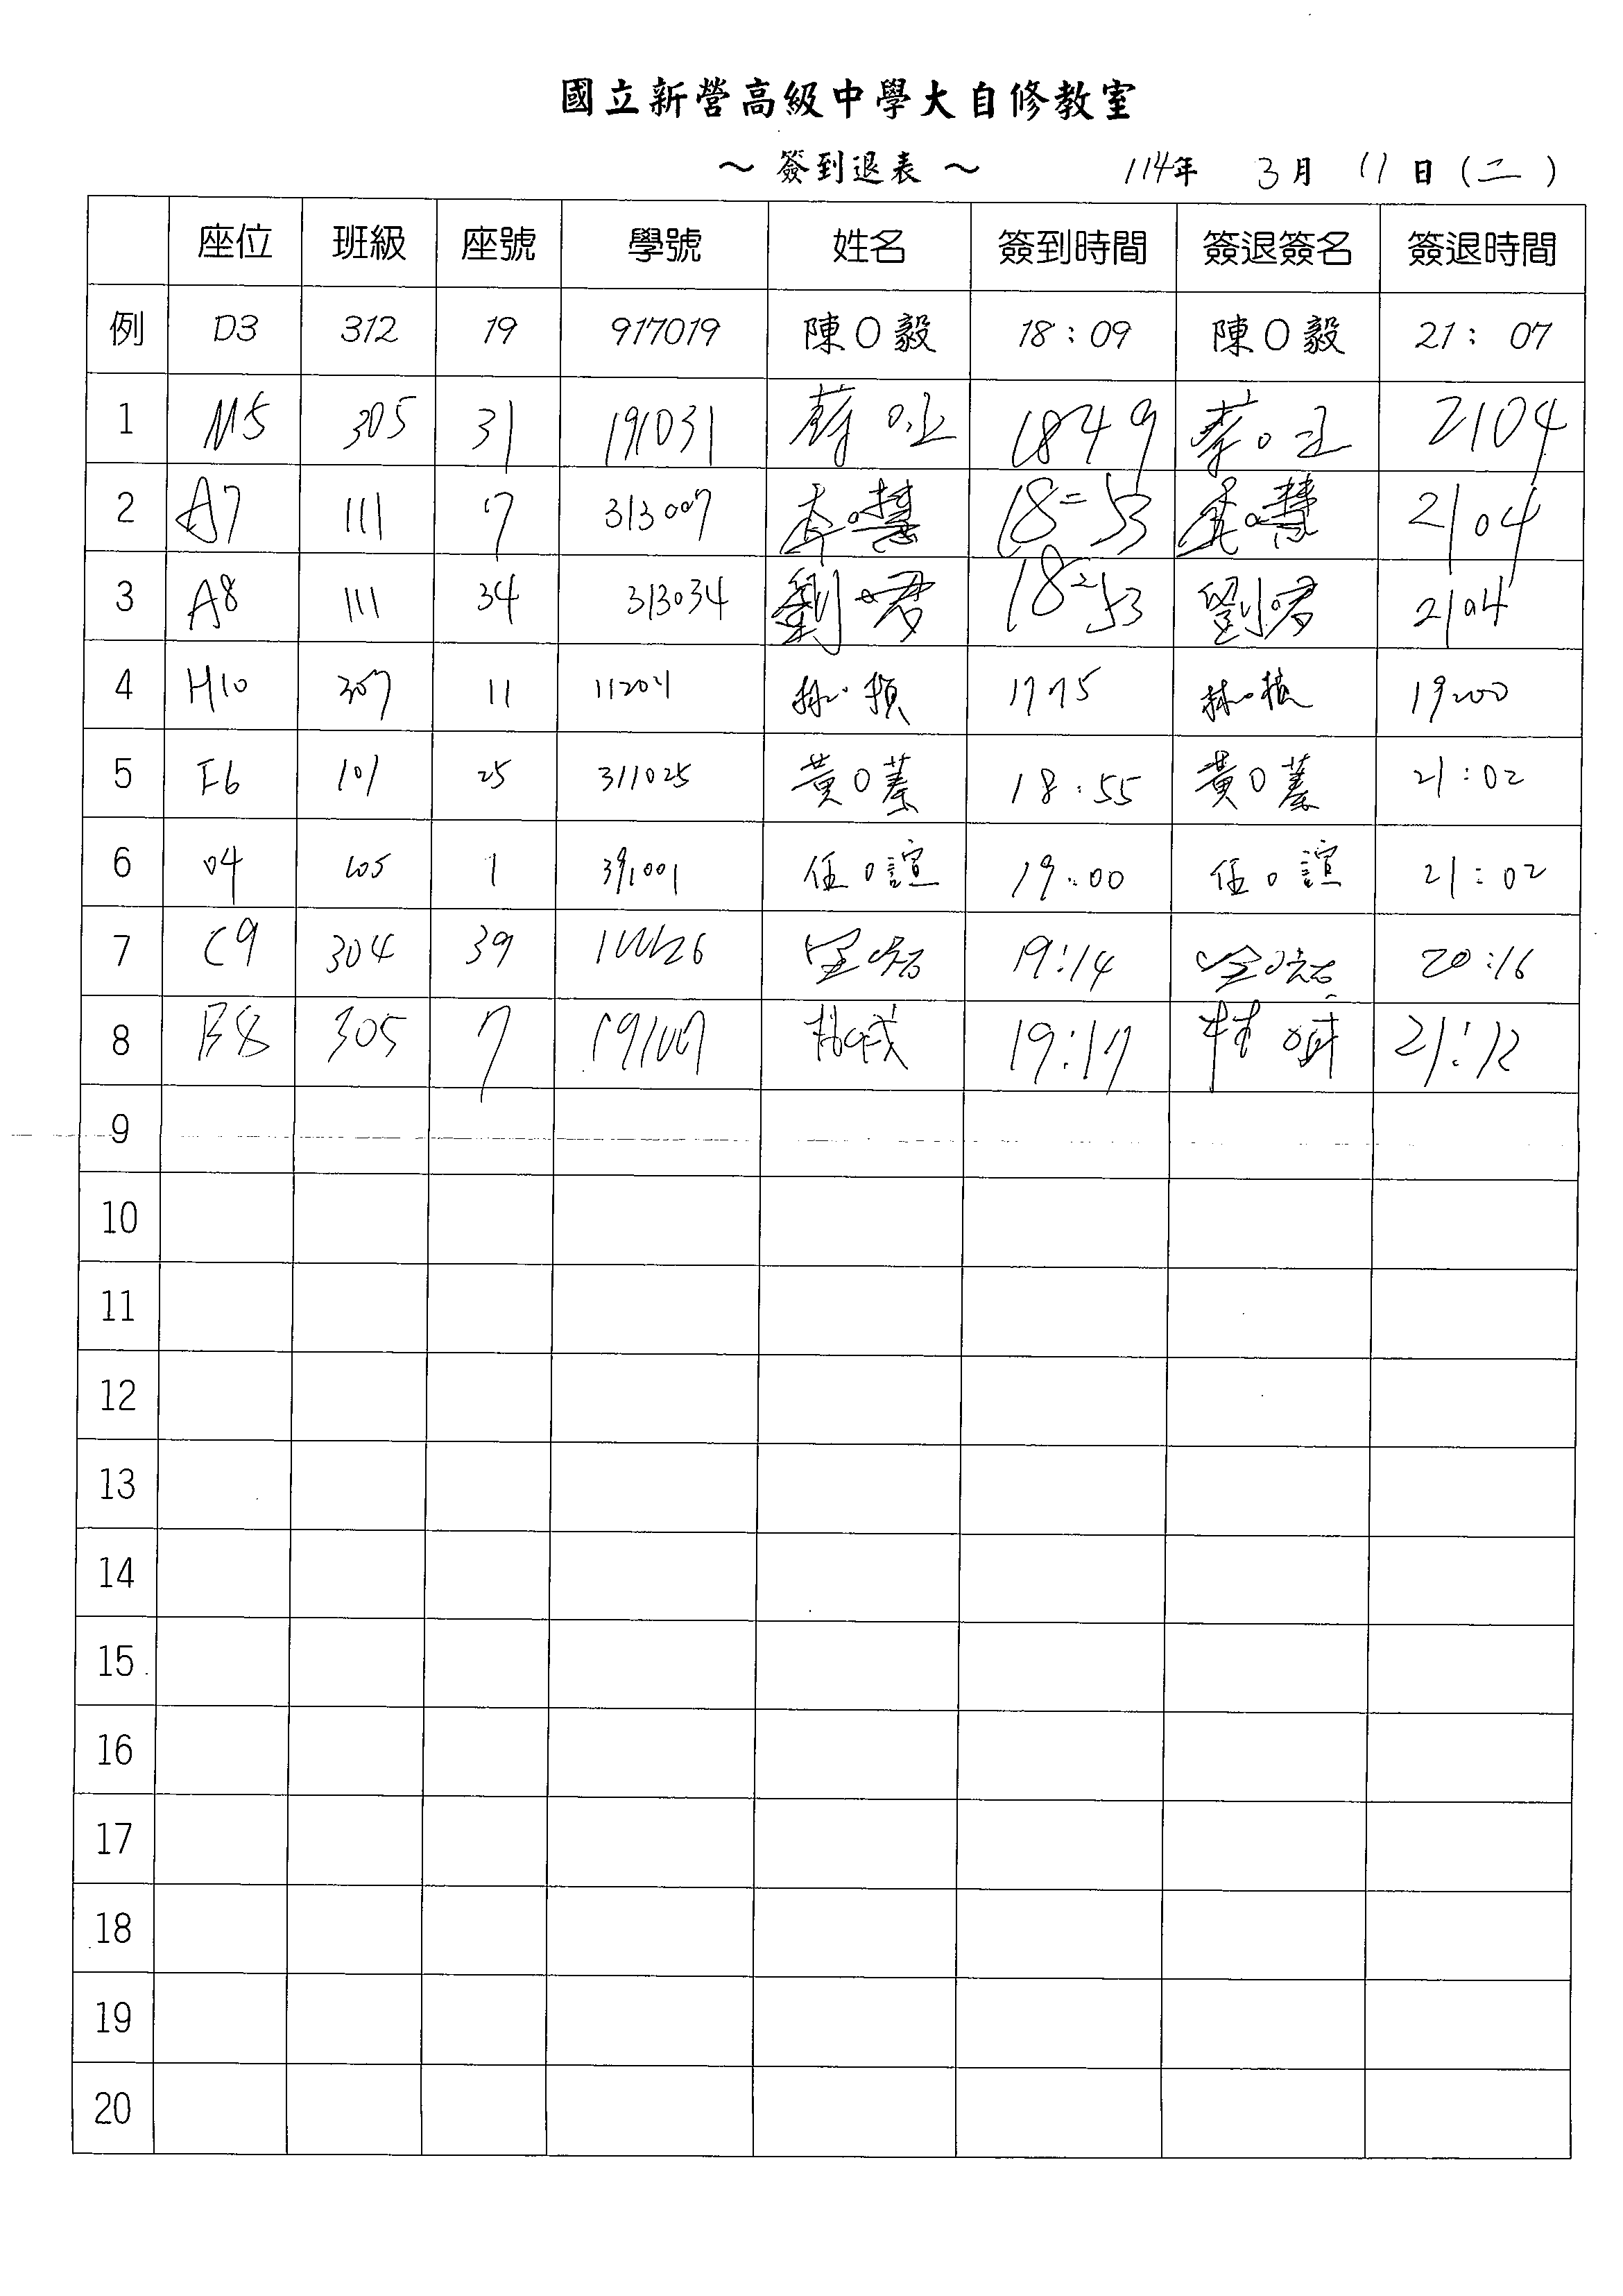 國立新營高級中學大自修教室
～ 簽到退表 ～ 114年 3月 11日(二)
座位 班級 座號 學號 姓名 簽到時間 簽退簽名 簽退時間
例 D3 312 19 917019 陳O毅 18:09 陳O毅 21:07
1 M5 305 31 191031 1849 2104
2 A7 111 7 313007 李O慧 18:53 李O慧 2104
3 A8 111 34 313034 劉O君 18:53 劉O君 2104
4 H10 307 11 林O 林O
5 F6 101 25 311025 黃O蓁 18:55 黃O蓁 21:02
6 04 105 1 391001 任O誼 19:00 任O誼 21:02
7 C9 304 39 19:14 20:16
8 B8 305 7 19:17 21:12
9
10
11
12
13
14
15
16
17
18
19
20